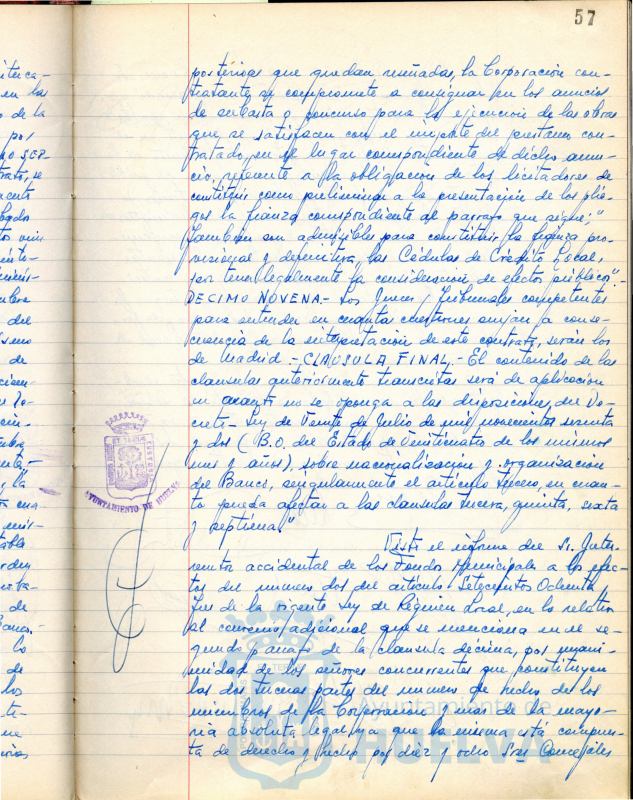 57
posterioridad que quedan reseñadas, la Corporación con-
tratante se compromete a consignar en los anuncios
de subasta o concurso para la ejecución de las obras
que se satisfacen con el importe del préstamo con-
tratado, en el lugar correspondiente de dicho anun-
cio, referente a la obligación de los licitadores de
constituir como preliminar a la presentación de los plie-
gos la fianza correspondiente al párrafo que sigue:"
También son admisibles para constituir la fianza pro-
visional y definitiva, las Cédulas de Crédito Local,
por tener legalmente la consideración de efectos públicos".-
DECIMO NOVENA.- Los Jueces y Tribunales competentes
para entender en cuantas cuestiones surjan a conse-
cuencia de la interpretación de este contrato, serán los
de Madrid.- CLAUSULA FINAL.- El contenido de las
clausulas anteriormente transcritas será de aplicación
en cuanto no se oponga a las disposiciones del De-
creto-Ley de Veinte de Julio de mil novecientos sesenta
y dos (B.O. del Estado de Veinticuatro de los mismos
mes y años), sobre nacionalización y organización
del Banco, singularmente el artículo tercero, en cuan-
to pueda afectar a las clausulas tercera, quinta, sexta
y septima."
Visto el informe del Sr. Inter-
ventor accidental de los Fondos Municipales a los efec-
tos del numero dos del artículo Setecientos Ochenta
Tres de la vigente Ley de Régimen Local, en lo relativo
al convenio adicional que se menciona en el se-
gundo párrafo de la clausula décima, por unani-
midad de los señores concurrentes que constituyen
las dos terceras partes del numero de hecho de los
miembros de la Corporación y mas de la mayo-
ria absoluta legal, ya que la misma está compues-
ta de derecho y hecho por diez y ocho Sres Concejales
AYUNTAMIENTO DE HUELVA
Ayuntamiento de
HUELVA